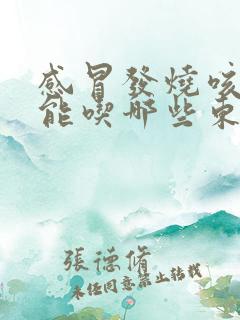 感冒發燒咳
能喫哪些東
張德脩
未經同意禁止轉載